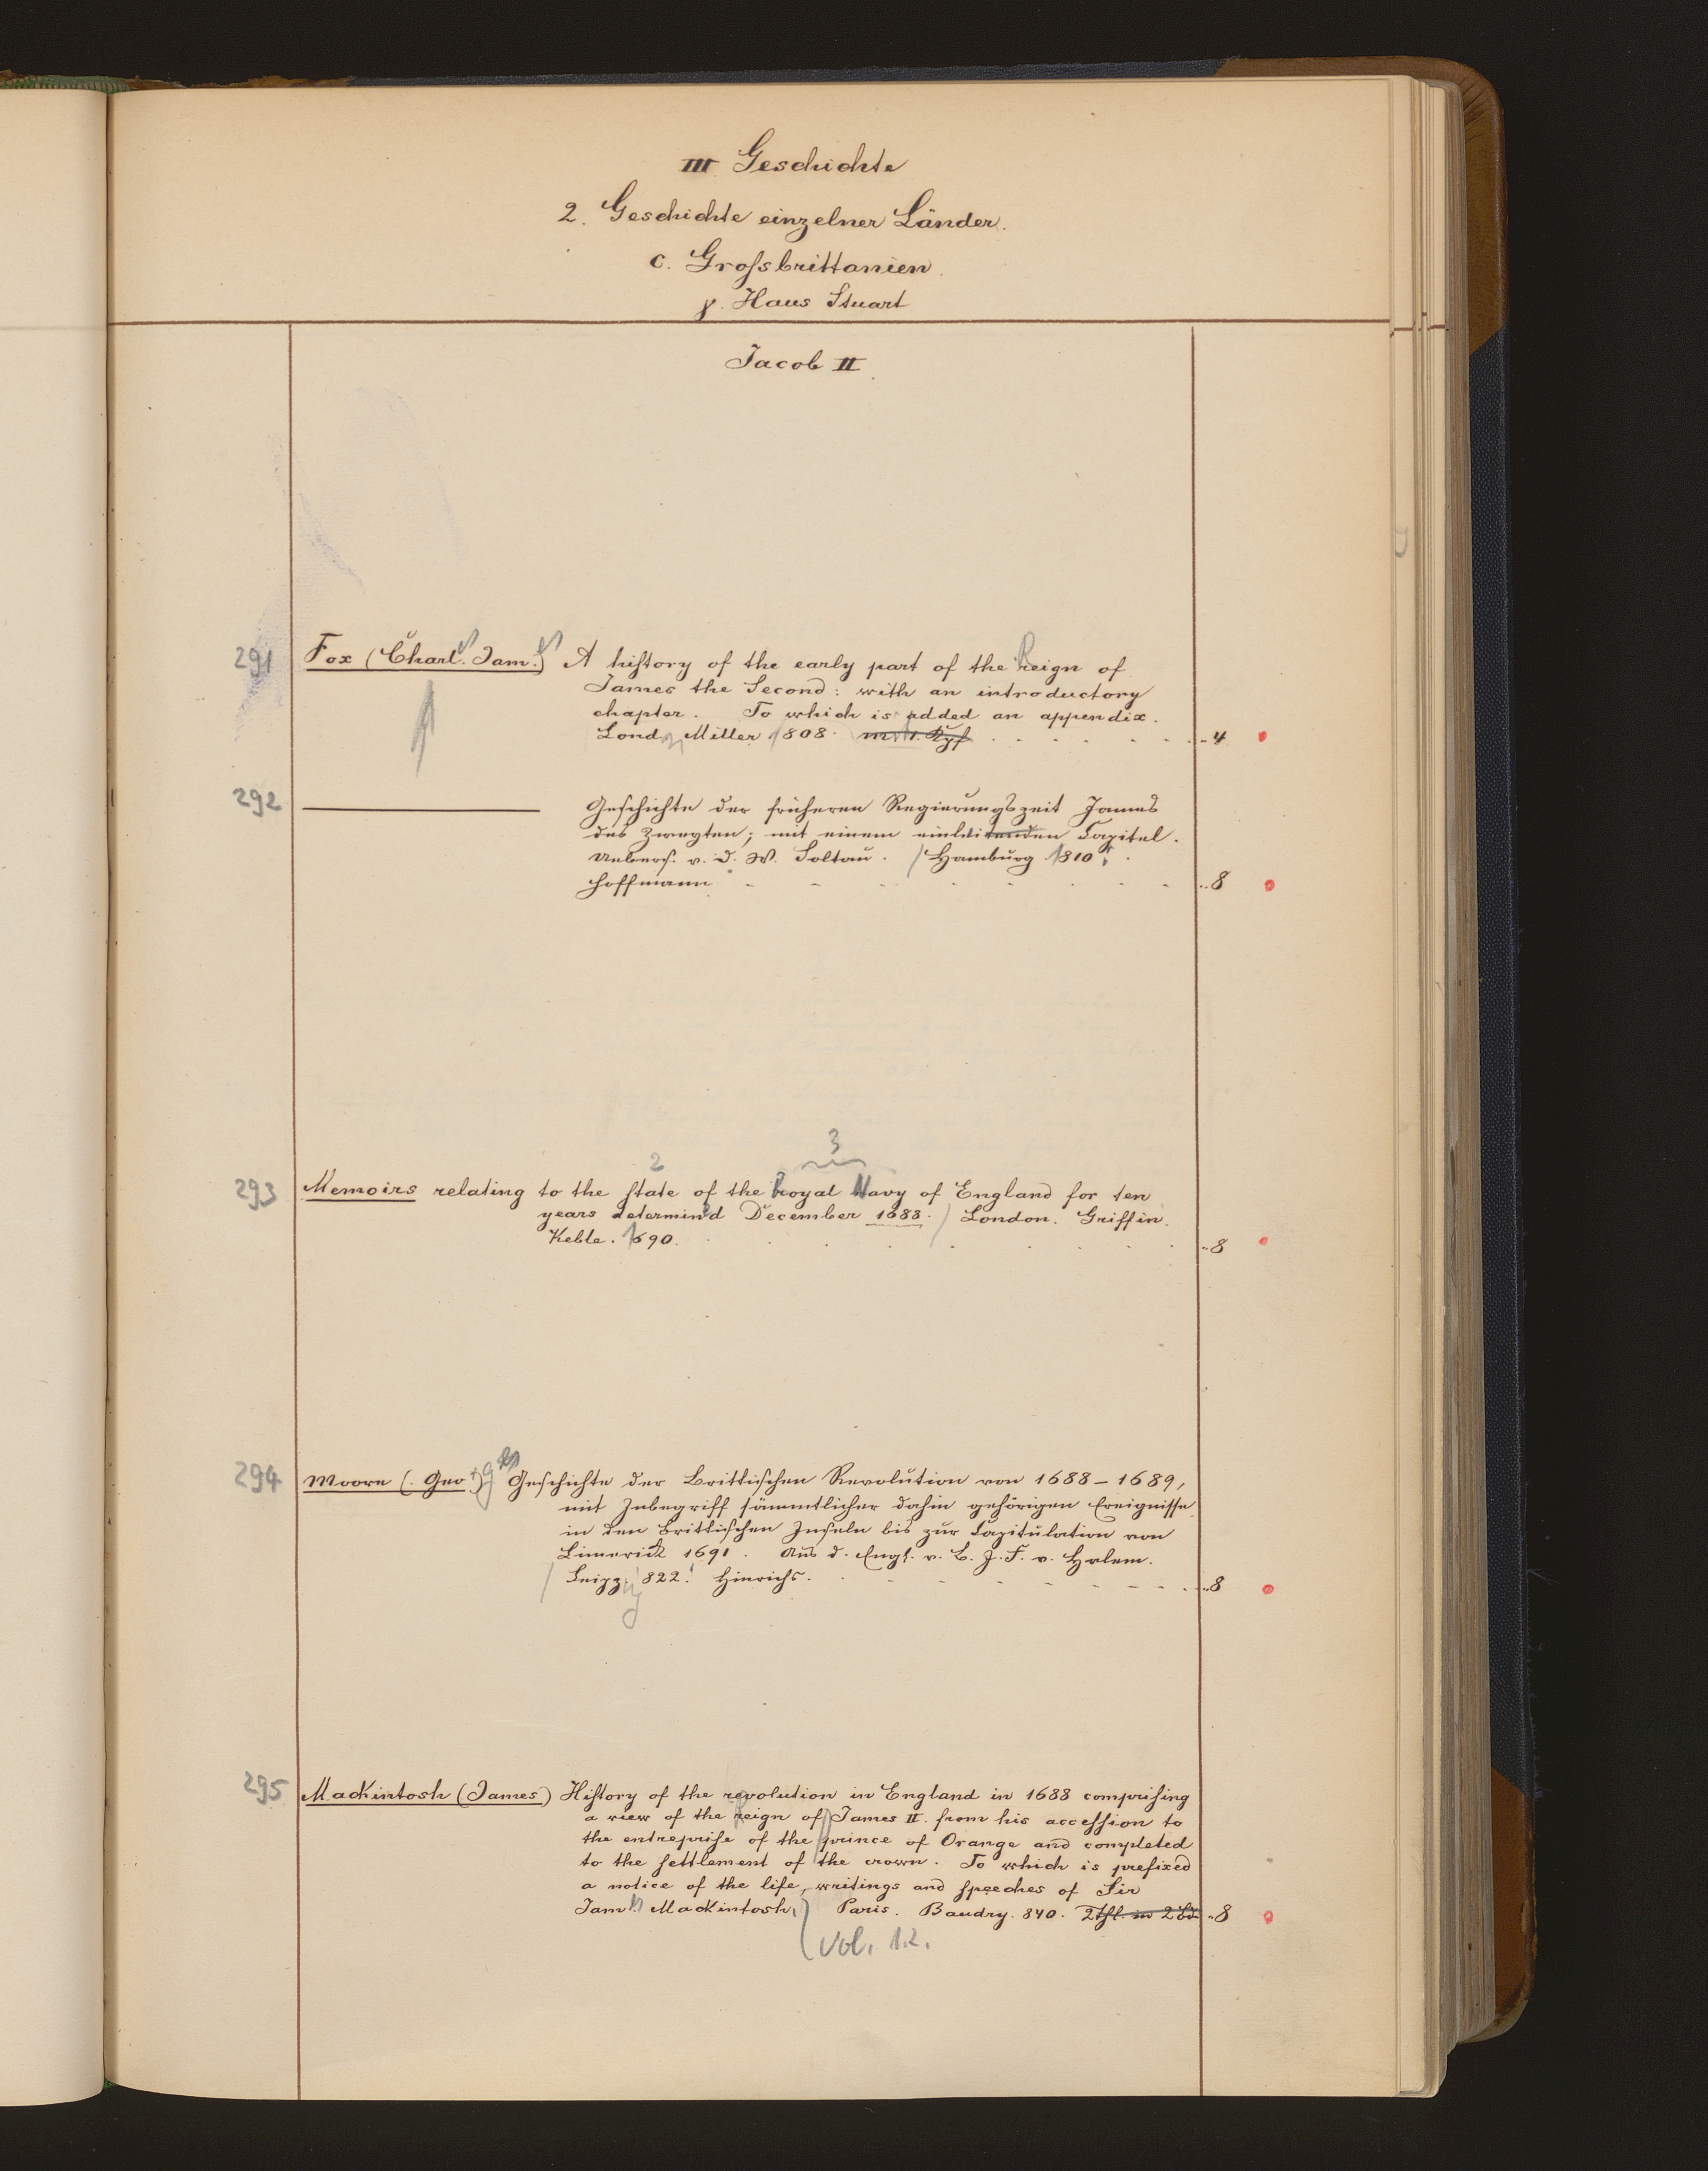 III Geschichte
2. Geschichte einzelner Länder.
c. Grossbrittanien.
γ. Haus Stuart
Jacob II.
291 Fox (Charl. Jam.) A history of the early part of the Reign of
James the Second: with an introductory
chapter. To which is added an appendix.
Lond. Miller 1808. mit 1. Kpf. 4
292 Geschichte der früheren Regierungszeit James
des Zweyten; mit einem einleitenden Capitel.
Uebers. v. D. W. Soltau. Hamburg 1810.
Hoffmann 8
2 3
293 Memoirs relating to the state of the Royal Navy of England for ten
years determin'd December 1688. London. Griffin.
Keble. 1690. 8
294 Moore (Geo.) Geschichte der Brittischen Revolution von 1688–1689,
mit Inbegriff sämmtlicher dahin gehörigen Ereignisse
in den brittischen Inseln bis zur Capitulation von
Limerick 1691. Aus d. Engl. v. B. J. F. v. Halem.
Leipz. 822. Hinrichs. 8
295 Mackintosh (James) History of the revolution in England in 1688 comprising
a view of the reign of James II. from his accession to
the entreprise of the prince of Orange and completed
to the settlement of the crown. To which is prefixed
a notice of the life, writings and speeches of Sir
Jam. Mackintosh. Paris. Baudry. 840. 2 Thl. in 2 Bd. 8
Vol. 1.2.